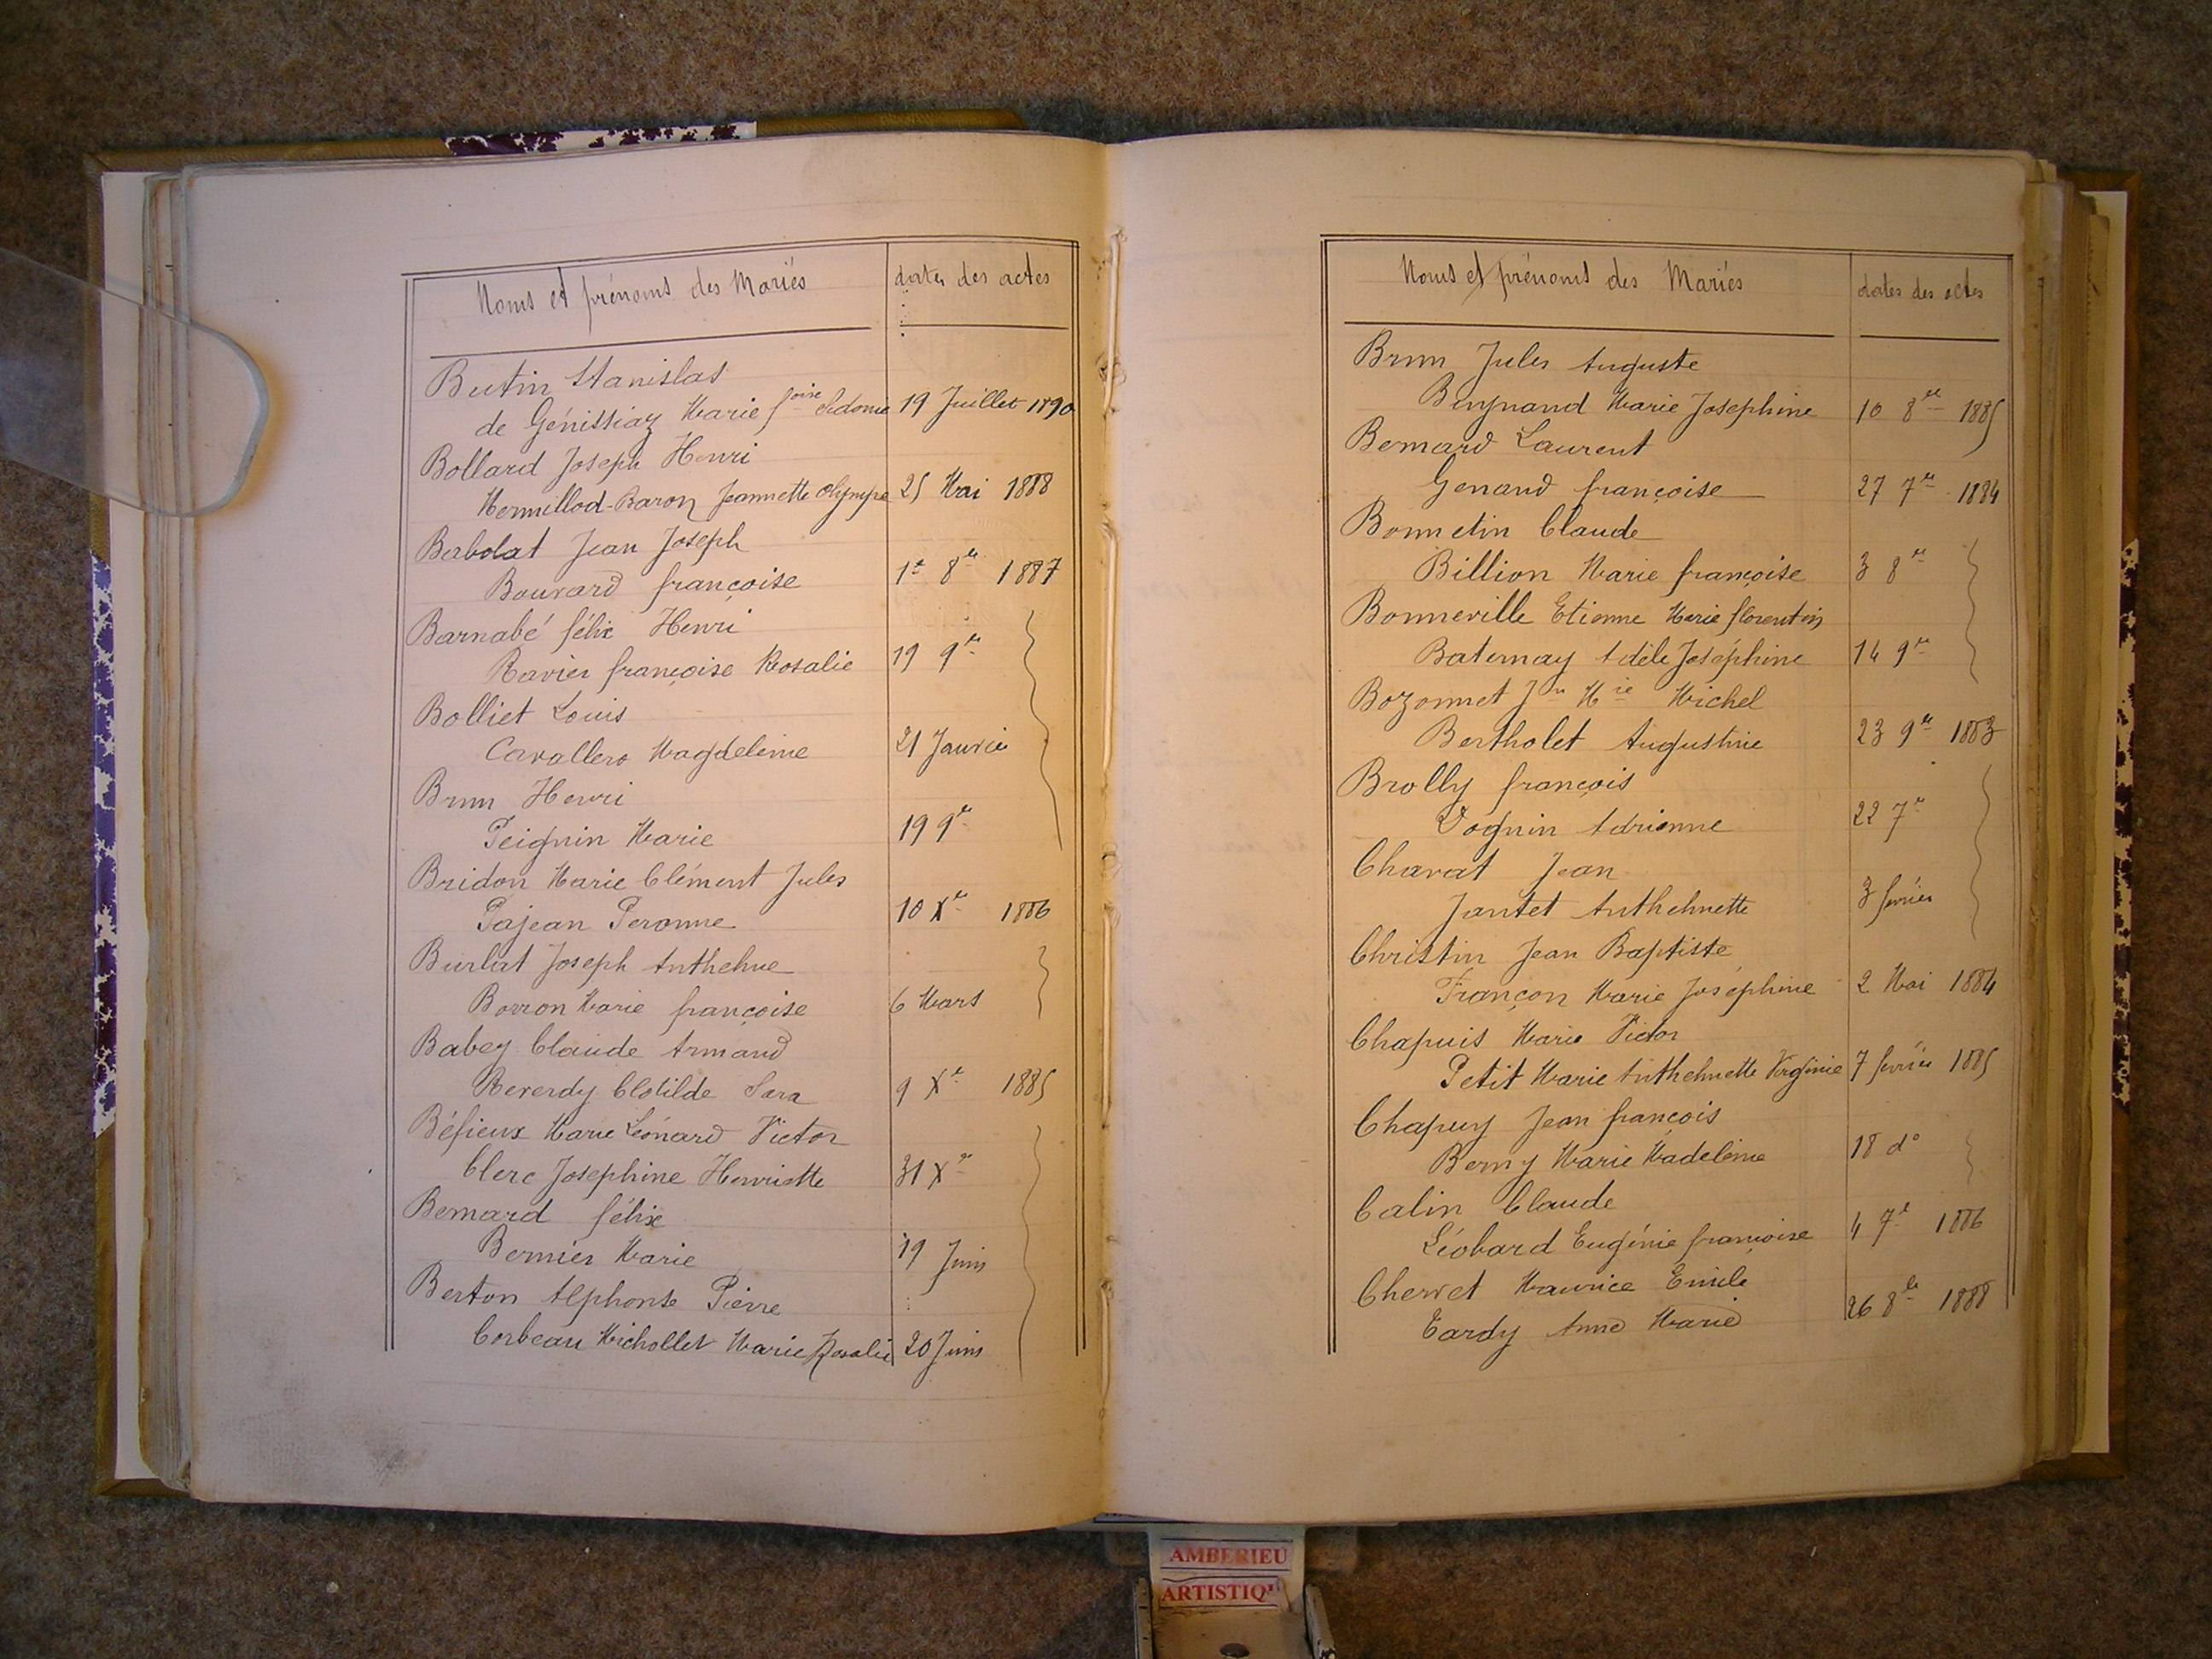 Noms et prénoms des Mariés dates des actes
Butin Stanislas
de Génissiaz Marie foise Sidonie 19 Juillet 1890
Bollard Joseph Henri
Mermillod-Baron Jeannette Olympe 25 Mai 1888
Berbolat Jean Joseph
Bouvard françoise 1er 8re 1887
Barnabé félix Henri
Ravier françoise Rosalie 19 9re
Bolliet Louis
Cavallero Magdeleine 21 Janvier
Brun Henri
Peignin Marie 19 9re
Bridon Marie Clément Jules
Pajean Peronne 10 Xre 1886
Burlat Joseph Anthelme
Borron Marie françoise 6 Mars
Babey Claude Armand
Reverdy Clotilde Sara 9 Xre 1885
Béfieux Marie Léonard Victor
Clerc Josephine Henriette 31 Xre
Bernard félix
Bernier Marie 19 Juin
Berton Alphonse Pierre
Corbeau Michollet Marie Rosalie 20 Juin
Noms et prénoms des Mariés dates des actes
Brun Jules Auguste
Marie Josephine 10 8re 1885
Bernard Laurent
Genand françoise 27 7re 1884
Bonnetin Claude
Billion Marie françoise 3 8re
Bonneville Etienne Marie florentin
Baternay Adèle Joséphine 14 9re
Bozonnet Jn Mie Michel
Bertholet Augustine 23 9re 1883
Brolly françois
Vognin Adrienne 22 7re
Charvat Jean
Jantet Anthelmette 3 février
Christin Jean Baptiste
Françon Marie Joséphine 2 Mai 1884
Chapuis Marie Victor
Petit Marie Anthelmette Virginie 7 février 1885
Chapuy Jean françois
Berny Marie Madeleine 18 do
Calin Claude
Léobard Eugénie françoise 4 7re 1886
Cherret Maurice Emile
Eardy Anne Marie 26 8re 1888
AMBERIEU
ARTISTIQU